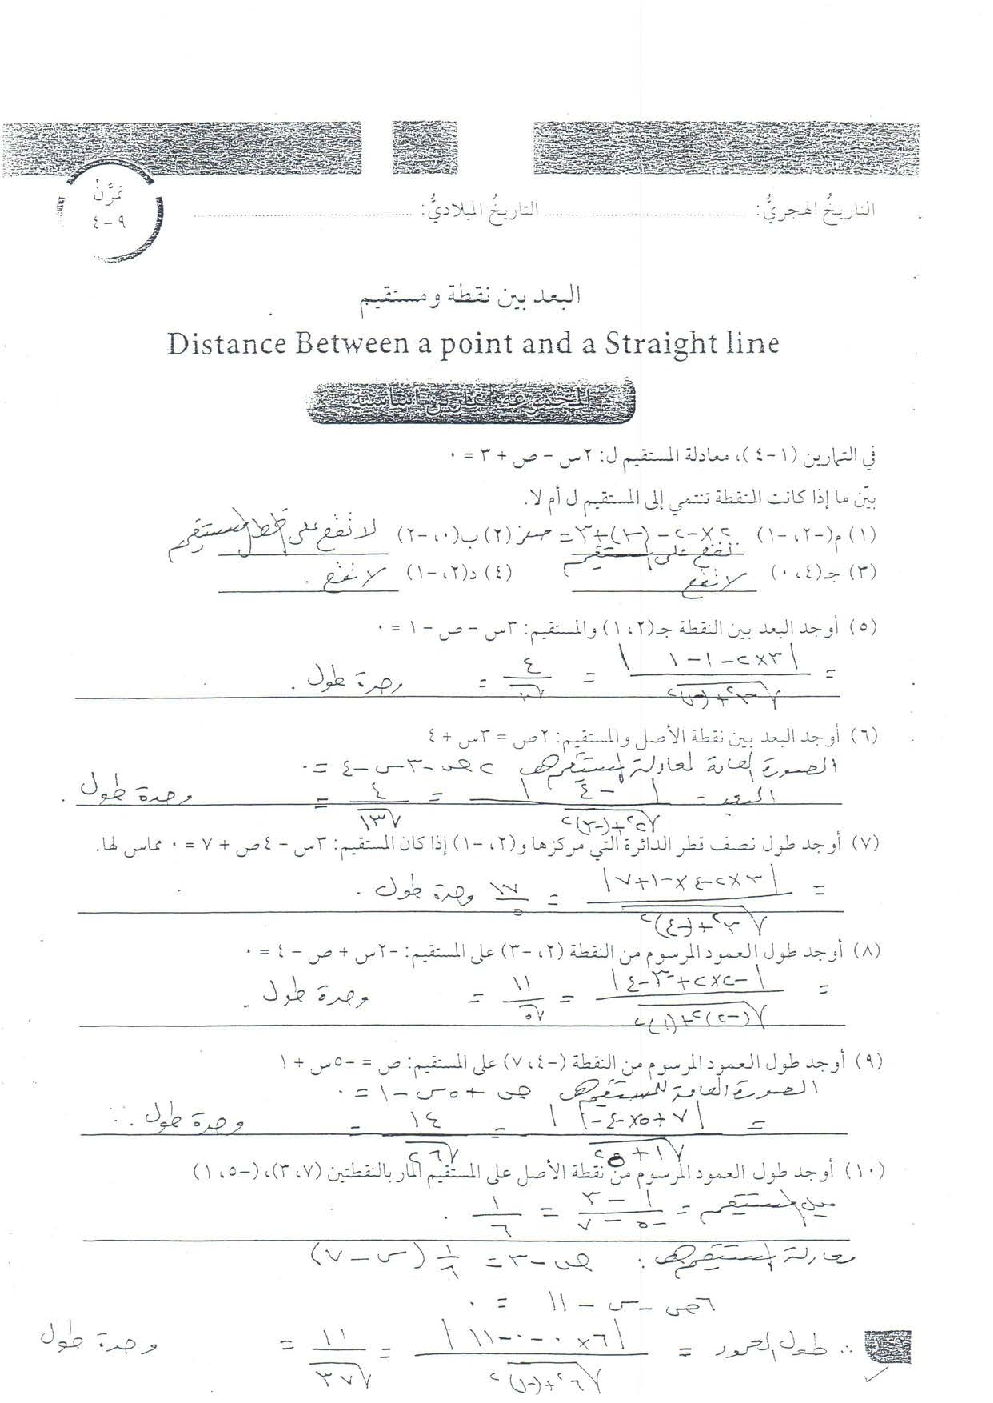 تمرَّنْ
٩-٤
التاريخُ الهجريُّ: ........ التاريخُ الميلاديُّ: ........
البعد بين نقطة ومستقيم
Distance Between a point and a Straight line
المجموعة أ تمارين أساسية
في التمارين (١-٤)، معادلة المستقيم ل: ٢س - ص + ٣ = ٠
بيّن ما إذا كانت النقطة تنتمي إلى المستقيم ل أم لا.
(١) م(-٢، -١) ٢×-٢ - (-١)+٣ = صفر (٢) ب(٠، -٢) لا تقع على المستقيم
تقع على المستقيم
(٣) جـ(٤، ٠) لا تقع (٤) د(٢، -١) لا تقع .
(٥) أوجد البعد بين النقطة جـ(٢، ١) والمستقيم: ٣س - ص - ١ = ٠
= |٣×٢-١-١| / √(٣²+(-١)²) = ٤/√١٠ = وحدة طول .
(٦) أوجد البعد بين نقطة الأصل والمستقيم: ٢ص = ٣س + ٤
الصورة العامة لمعادلة المستقيم هي ٢ص - ٣س - ٤ = ٠
البعد = |-٤| / √(٢²+(-٣)²) = ٤/√١٣ = وحدة طول .
(٧) أوجد طول نصف قطر الدائرة التي مركزها و(٢، -١) إذا كان المستقيم: ٣س - ٤ص + ٧ = ٠ مماس لها.
= |٣×٢-٤×-١+٧| / √(٣²+(-٤)²) = ١٧/٥ وحدة طول .
(٨) أوجد طول العمود المرسوم من النقطة (٢، -٣) على المستقيم: -٢س + ص - ٤ = ٠
= |-٢×٢+-٣-٤| / √((-٢)²+(١)²) = ١١/√٥ = وحدة طول .
(٩) أوجد طول العمود المرسوم من النقطة (-٤، ٧) على المستقيم: ص = -٥س + ١
الصورة العامة للمستقيم هي ص + ٥س - ١ = ٠
= |٧+٥×-٤-١| / √(١+٥²) = ١٤/√٢٦ = وحدة طول .
(١٠) أوجد طول العمود المرسوم من نقطة الأصل على المستقيم المار بالنقطتين (٧، ٣)، (-٥، ١)
ميل المستقيم = (١ - ٣)/(-٥ - ٧) = ١/٦ .
معادلة المستقيم هي : ص - ٣ = ١/٦ (س - ٧)
٦ص - س - ١١ = ٠
∴ طول العمود = |٦×٠-٠-١١| / √(٦²+(-١)²) = ١١/√٣٧ = وحدة طول